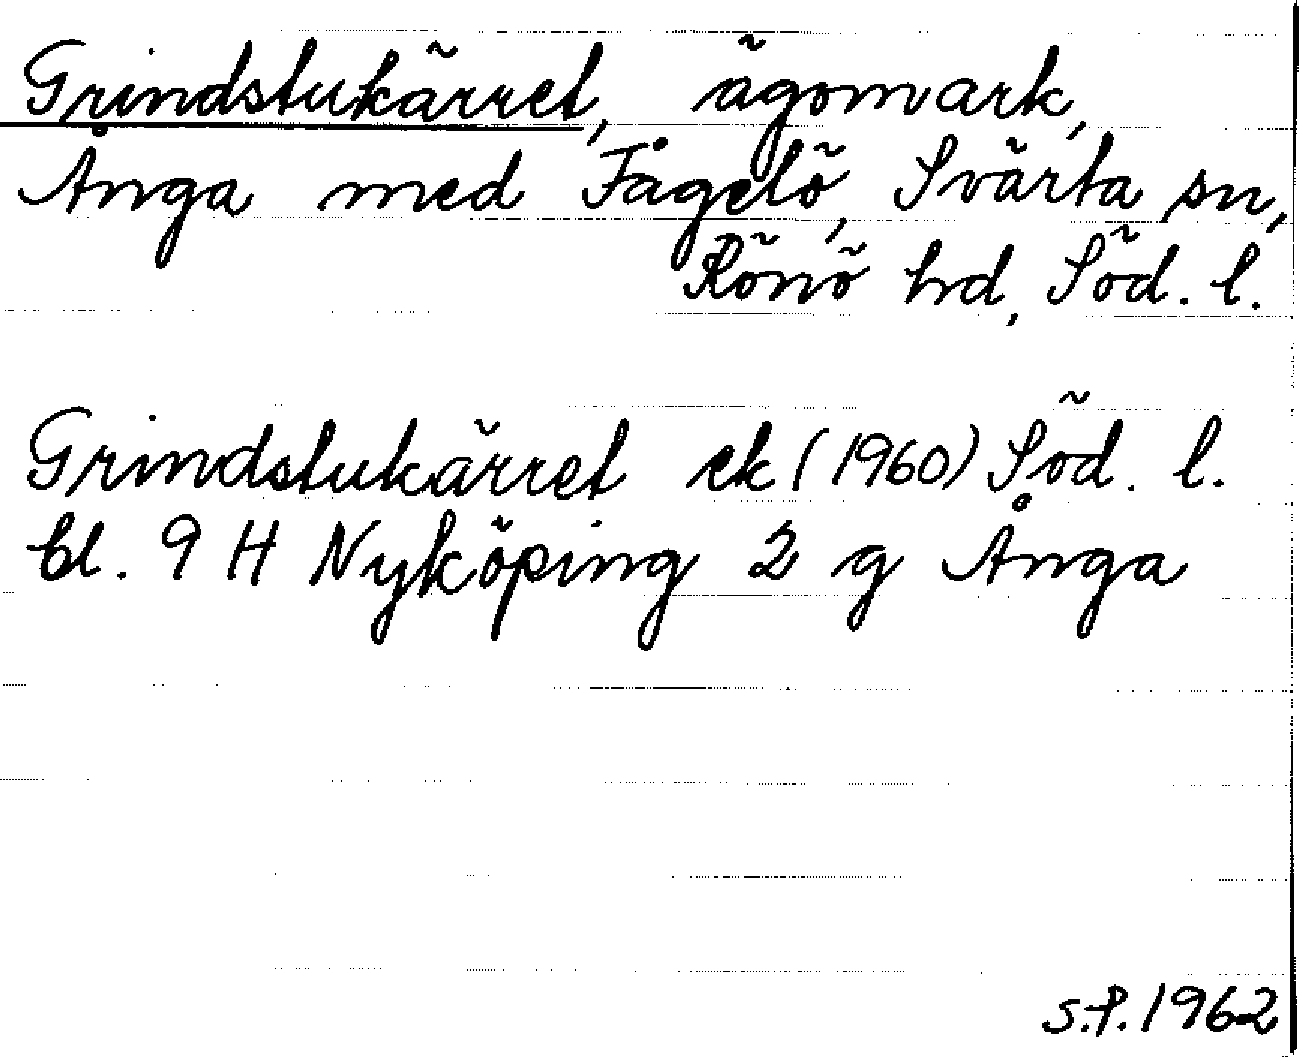 Grindstukärret, ägomark,
Ånga med Fågelö, Svärta sn,
Rönö hd, Söd. l.
Grindstukärret ek (1960) Söd. l.
bl. 9 H Nyköping 2 g Ånga
S.P. 1962